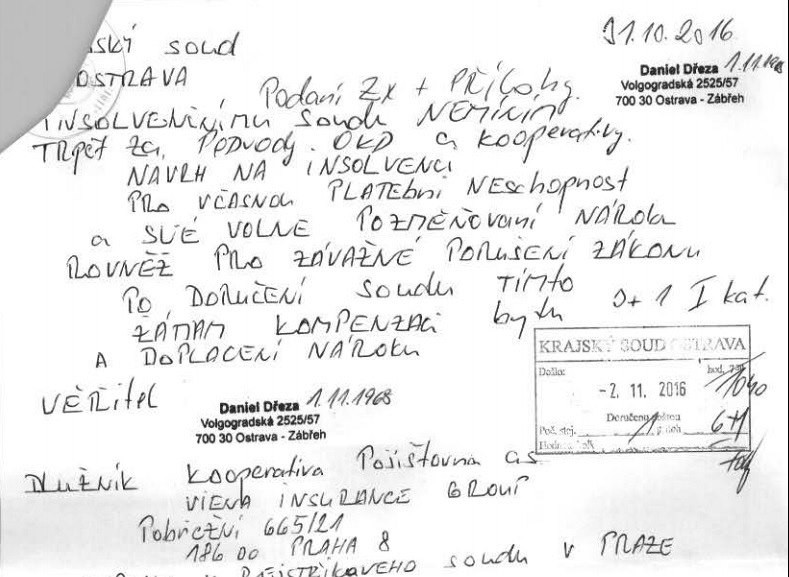 ský soud
OSTRAVA
31.10.2016
Daniel Dřeza 1.11.1968
Volgogradská 2525/57
700 30 Ostrava - Zábřeh
Podaní 2x + PŘÍlohy.
INSOLVENČNÍMU soudu NEMÍNÍM
TRPĚT ZA PODVODY. OKD a kooperativy.
NÁVRH NA INSOLVENCI
PRO VČASNOU PLATEBNÍ NESCHOPNOST
a SVÉ VOLNÉ POZMĚŇOVANÍ NÁROKU
ROVNĚŽ PRO ZÁVAŽNÉ PORUŠENÍ ZÁKONU
PO DORUČENÍ soudu TÍMTO
ŽÁDAM KOMPENZACI bytu 3+1 I kat.
A DOPLACENÍ NÁROKU
KRAJSKÝ SOUD OSTRAVA
Došlo: hod.
-2. 11. 2016 1040
Doručeno poštou
Poč. stej. 1 příloh 6+1
VĚŘITEL
Daniel Dřeza 1.11.1968
Volgogradská 2525/57
700 30 Ostrava - Zábřeh
DLUŽNÍK kooperativa Pojišťovna as
VIENA INSURANCE GROUP
Pobřežní 665/21
186 00 PRAHA 8
soudu v PRAZE